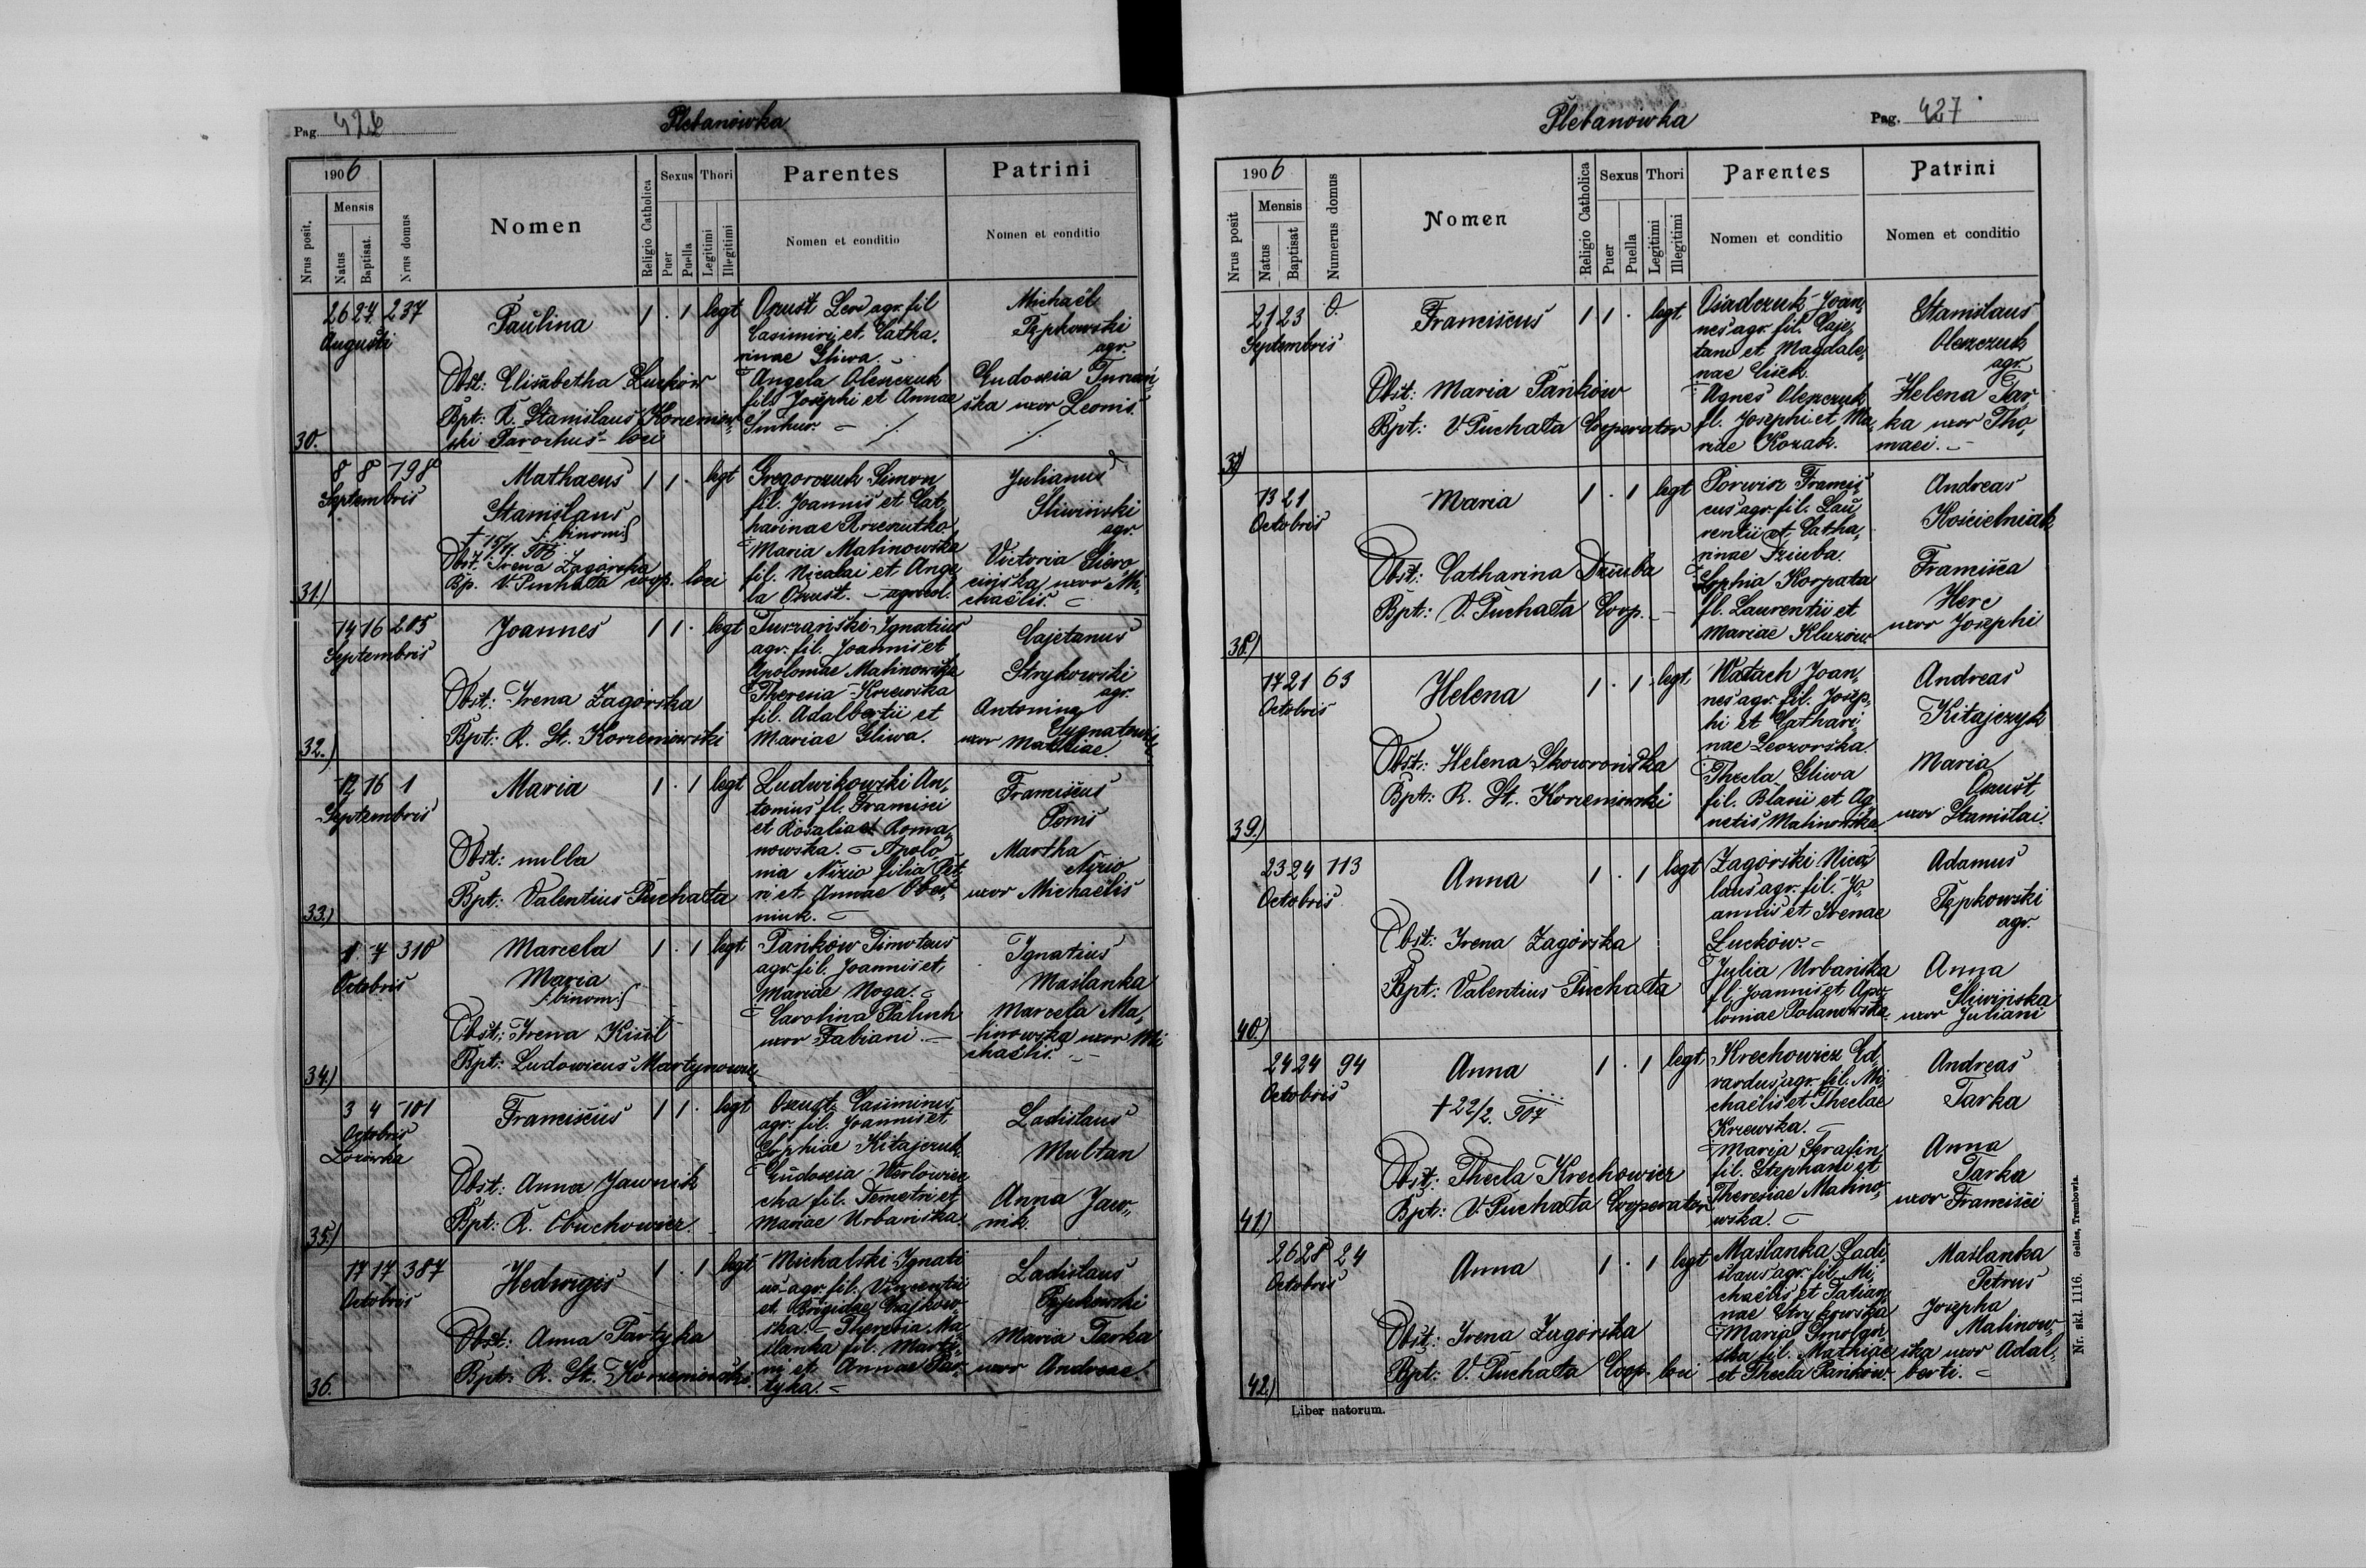 Pag. 426
Plebanówka
1906
Mensis
Nrus posit.
Natus
Baptisat.
Nrus domus
Nomen
Religio Catholica
Sexus
Puer
Puella
Thori
Legitimi
Illegitimi
Parentes
Nomen et conditio
Patrini
Nomen et conditio
30.
26 27 237
Augusti
Paulina
1 . 1 legt
Obst: Elisabetha Luckow
Bpt: R. Stanislaus Korzeniow-
ski Parochus loci
Oxust Leo agr. fil
Casimiri et Catha-
rinae Gliwa.
Angela Olenczuk
fil. Josephi et Annae
Michaël
Pępkowski
agr.
Eudoxia Turzań-
ska uxor Leonis.
31.)
8 8 198
Septembris
Mathaeus
Stanislaus
binom.
1 1 . legt
Obst. Irena Zagórska
Bp. V. Puchała coop. loci
Gregorczuk Simon
fil. Joannis et Cat-
harinae
Maria Malinowska
fil. Nicolai et Ange
la Oxust. agricol.
Julianus
Śliwiński
agr.
Victoria Siero
cińska uxor Mi-
chaëlis.
32.)
14 16 205
Septembris
Joannes
1 1 . legt
Obst: Irena Zagórska
Bpt: R. St. Korzeniowski
Turzański Ignatius
agr. fil. Joannis et
Apoloniae Malinowska
Theresia Krzewska
fil. Adalbertii et
Mariae Gliwa.
Cajetanus
Strykowski
agr.
Antonina
uxor Mathiae.
33.)
12 16 1
Septembris
Maria
1 . 1 legt
Obst: nulla
Bpt: Valentius Puchała
Ludwikowski An-
tonius fl. Francisci
et Rosaliae Roma-
nowska. Apolo-
nia Nizio filia Pet-
ri et Annae
niuk.
Franciscus
Martha
Nizio
uxor Michaëlis
34.)
1 7 310
Octobris
Marcela
Maria
binom.
1 . 1 legt
Obst: Irena Kisil
Bpt: Ludowicus Martynowicz
Pańków Timoteus
agr. fil. Joannis et
Mariae Noga.
Carolina Paluch
uxor Fabiani.
Ignatius
Maślanka
Marcela Ma-
linowska uxor Mi
chaëlis.
35.)
3 4 101
Octobris
Lozówka
Franciscus
1 1 . legt
Obst: Anna Jawnik
Bpt: R. Obuchowicz.
Oxust Casimirus
agr. fil. Joannis et
Sophiae Kitajczuk.
Eudoxia
cha fil. Demetri et
Mariae Urbańska.
Ladislaus
Multan
Anna Jaw-
nik.
36.
17 17 387
Octobris
Hedwigis
1 . 1 legt
Obst: Anna Partyka
Bpt: R. St. Korzeniowski.
Michalski Ignati
us agr. fil. Vincentii
et Brigidae Gajkow-
ska. Theresia Ma-
ślanka fil. Marti-
ni et Annae Par-
tyka.
Ladislaus
Pępkowski
Maria Tarka
uxor Andreae.
Plebanówka
Pag. 427
1906
Mensis
Nrus posit
Natus
Baptisat
Numerus domus
Nomen
Religio Catholica
Sexus
Puer
Puella
Thori
Legitimi
Illegitimi
Parentes
Nomen et conditio
Patrini
Nomen et conditio
37)
21 23 0.
Septembris
Franciscus
1 1 . legt.
Obst: Maria Pańków
Bpt: V. Puchała Cooperator
Osadczuk Joan-
nes agr. fil. Caje-
tani et Magdale-
nae
Agnes Olenczuk
fl. Josephi et Ma-
riae Kozak.
Stanislaus
Olenczuk
agr.
Helena Tar-
ka uxor Tho-
maei.
38.)
13 21
Octobris
Maria
1 . 1 legt
Obst: Catharina Dziuba
Bpt: V. Puchała Coop.
Porwisz Francis-
cus agr. fil. Lau-
rentii et Catha-
rinae Dziuba.
Sophia Korpata
fl. Laurentii et
Mariae Kluzów.
Andreas
Kościelniak
Francisca
Herc
uxor Josephi
39.)
17 21 63
Octobris
Helena
1 . 1 legt.
Obst: Helena Skowrońska
Bpt: R. St. Korzeniowski
Wałach Joan-
nes agr. fil. Josep-
hi et Cathari-
nae
Thecla Gliwa
fil. Blasii et Ag
netis Malinowska
Andreas
Kitajczyk
Maria
Oxust
uxor Stanislai.
40.)
23 24 113
Octobris
Anna
1 . 1 legt
Obst: Irena Zagórska
Bpt: Valentius Puchała
Zagórski Nico-
laus agr. fil. Jo-
annis et Irenae
Luckow.
Julia Urbańska
fl. Joannis et Apo-
loniae Polanowska.
Adamus
Pępkowski
agr.
Anna
Śliwińska
uxor Juliani
41.)
24 24 94
Octobris
Anna
+ 22/2. 907
1 . 1 legt.
Obst: Thecla Krechowicz
Bpt: V. Puchała Cooperator
Krechowicz Ed-
vardus agr. fil. Mi-
chaëlis et Theclae
Krzewska.
Maria Serafin
fil. Stephani et
Theresiae Malino-
wska.
Andreas
Tarka
Anna
Tarka
uxor Francisci
42.)
26 28 24
Octobris
Anna
1 . 1 legt
Obst: Irena Zagórska
Bpt: V. Puchała Coop. loci
Maślanka Ladi-
slaus agr. fil. Mi-
chaëlis et Tatian-
nae Strykowska
Maria Smolgor-
ska fil. Mathiae
et Thecla Pańków.
Maślanka
Petrus
Josepha
Malinow-
ska uxor Adal-
berti.
Liber natorum.
Nr. skl. 1116. Gelles, Trembowla.